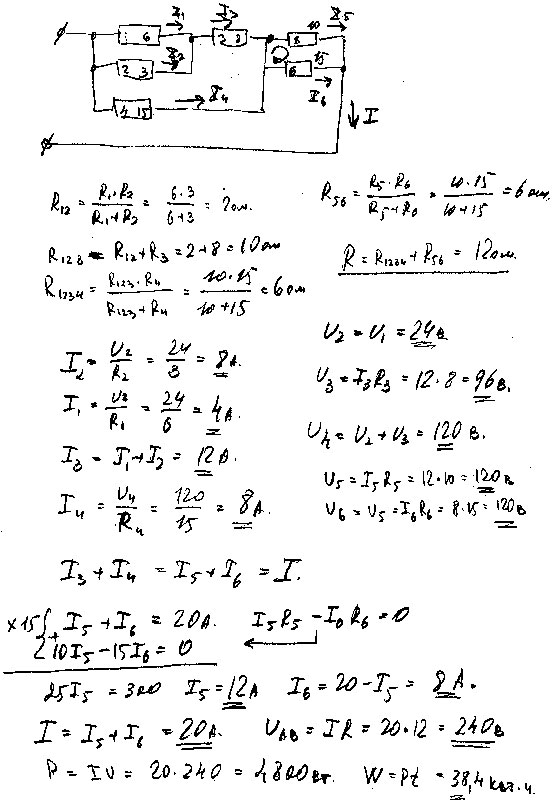 I₁ I₃ 10 I₅
1 6 2 8 8
I₂
2 3 6 15
4 15 I₄ I₆
I
R₁₂ = R₁·R₂ / R₁+R₂ = 6·3 / 6+3 = 2ом. R₅₆ = R₅·R₆ / R₅+R₆ = 10·15 / 10+15 = 6ом.
R₁₂₃ = R₁₂+R₃ = 2+8 = 10ом
R = R₁₂₃₄+R₅₆ = 12ом.
R₁₂₃₄ = R₁₂₃·R₄ / R₁₂₃+R₄ = 10·15 / 10+15 = 6ом
U₂ = U₁ = 24в
I₂ = U₂ / R₂ = 24 / 3 = 8А.
U₃ = I₃R₃ = 12·8 = 96в.
I₁ = U₂ / R₁ = 24 / 6 = 4А.
U₄ = U₂+U₃ = 120в.
I₃ = I₁+I₂ = 12А.
U₅ = I₅R₅ = 12·10 = 120в
I₄ = U₄ / R₄ = 120 / 15 = 8А.
U₆ = U₅ = I₆R₆ = 8·15 = 120в
I₃ + I₄ = I₅ + I₆ = I.
×15 { I₅ + I₆ = 20А. I₅R₅ – I₆R₆ = 0
+ 10I₅ – 15I₆ = 0
25I₅ = 300 I₅ = 12А I₆ = 20 – I₅ = 8А.
I = I₅ + I₆ = 20А. UАВ = IR = 20·12 = 240в
P = IU = 20·240 = 4800вт. W = Pt = 38,4 квт·ч.